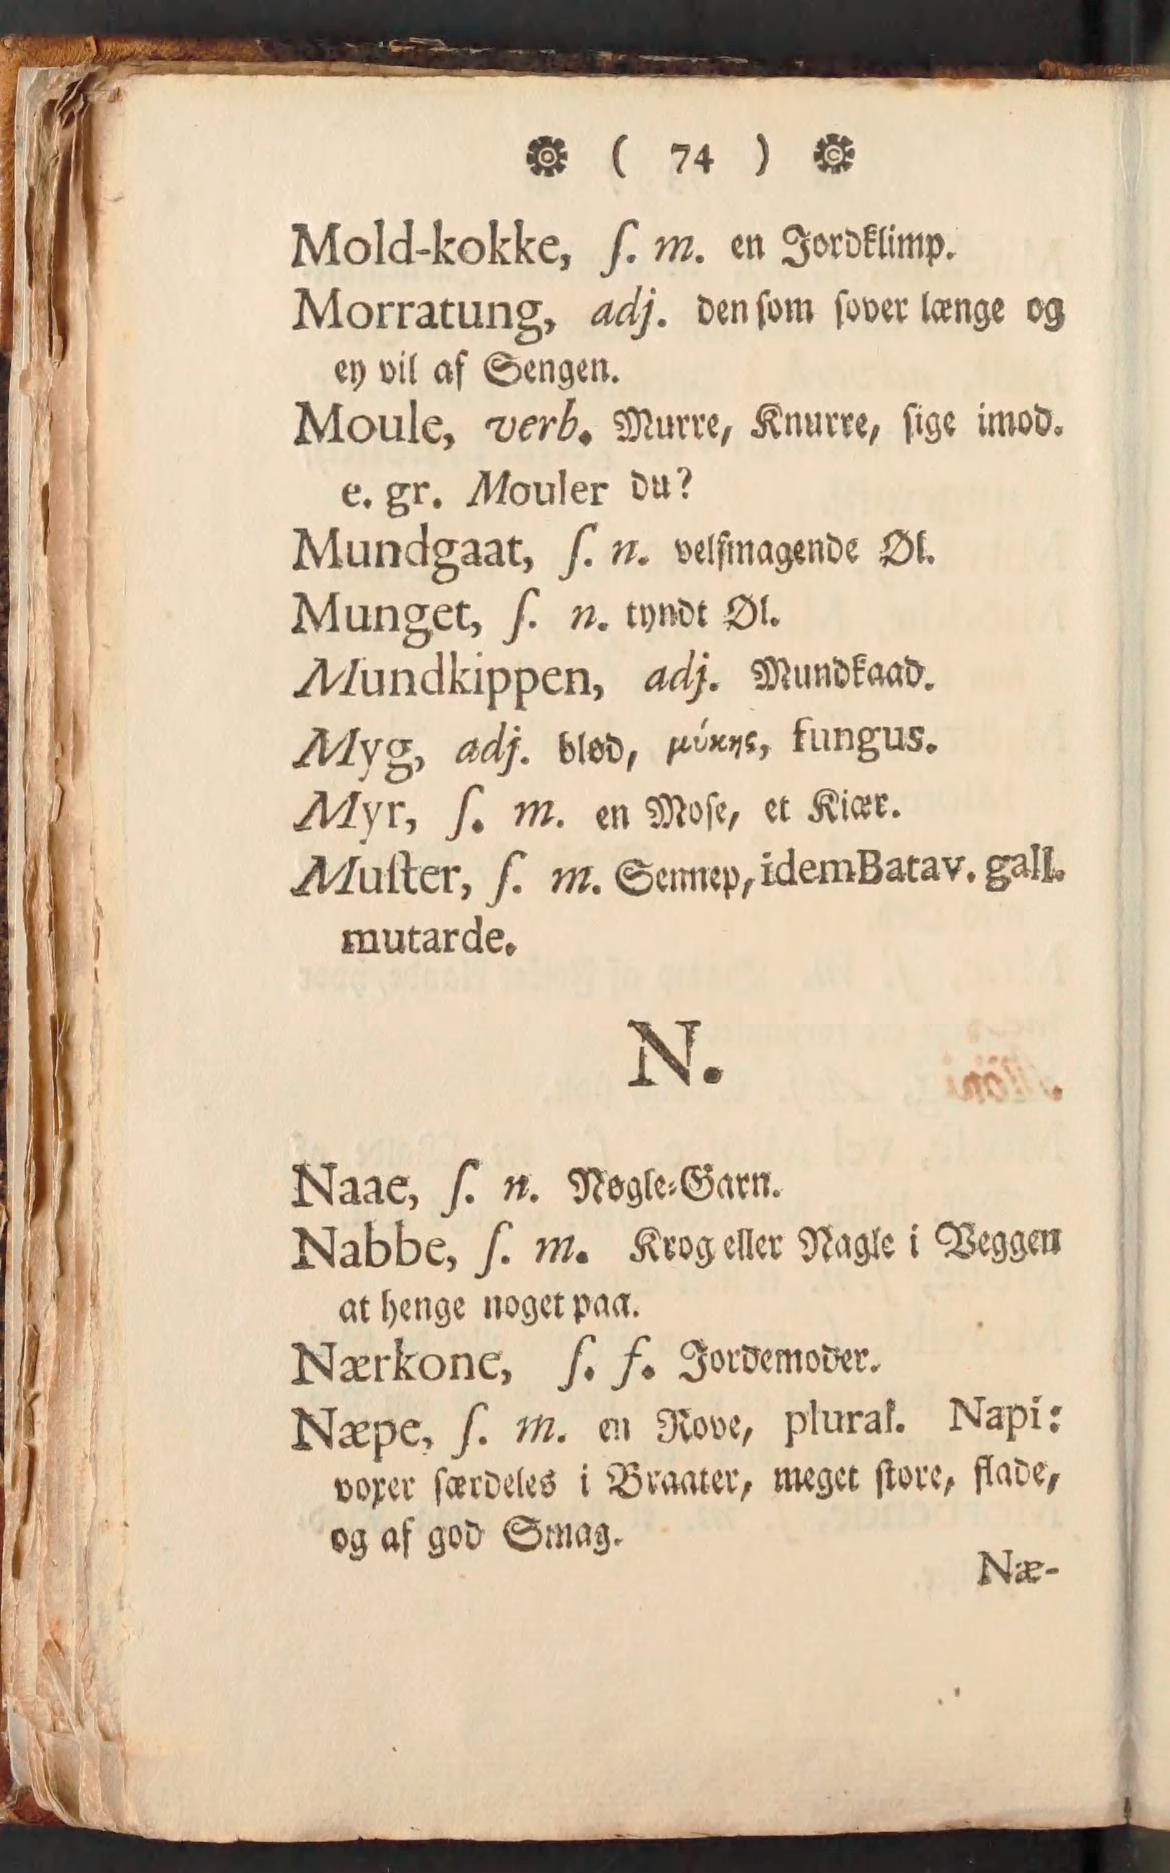 ( 74 )
Mold-kokke, ſ. m. en Jordklimp.
Morratung, adj. den ſom ſover længe og
ey vil af Sengen.
Moule, verb. Murre, Knurre, ſige imod.
e. gr. Mouler du?
Mundgaat, ſ. n. velſmagende Øl.
Munget, ſ. n. tyndt Øl.
Mundkippen, adj. Mundkaad.
Myg, adj. blød, μύκης, fungus.
Myr, ſ. m. en Moſe, et Kiær.
Muſter, ſ. m. Sennep, idem Batav. gall.
mutarde.
N.
Naae, ſ. n. Nøgle-Garn.
Nabbe, ſ. m. Krog eller Nagle i Veggen
at henge noget paa.
Nærkone, ſ. f. Jordemoder.
Næpe, ſ. m. en Rove, plural. Napi:
voxer ſærdeles i Braater, meget ſtore, flade,
og af god Smag.
Næ-